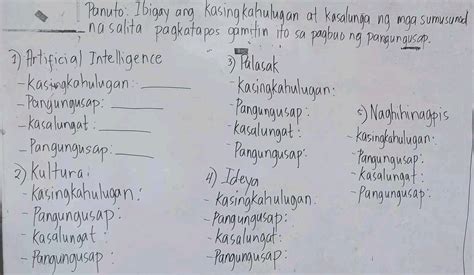 Panuto: Ibigay ang kasingkahulugan at kasalungat ng mga sumusunod
na salita pagkatapos gamitin ito sa pagbuo ng pangungusap.
1) Artificial Intelligence
- Kasingkahulugan:
- Pangungusap:
- Kasalungat:
- Pangungusap:
2) Kultura:
- Kasingkahulugan:
- Pangungusap:
- Kasalungat:
- Pangungusap:
3) Palasak
- Kasingkahulugan:
- Pangungusap:
- Kasalungat:
- Pangungusap:
4) Ideya
- Kasingkahulugan:
- Pangungusap:
- Kasalungat:
- Pangungusap:
5) Naghihinagpis
- Kasingkahulugan:
- Pangungusap:
- Kasalungat:
- Pangungusap: